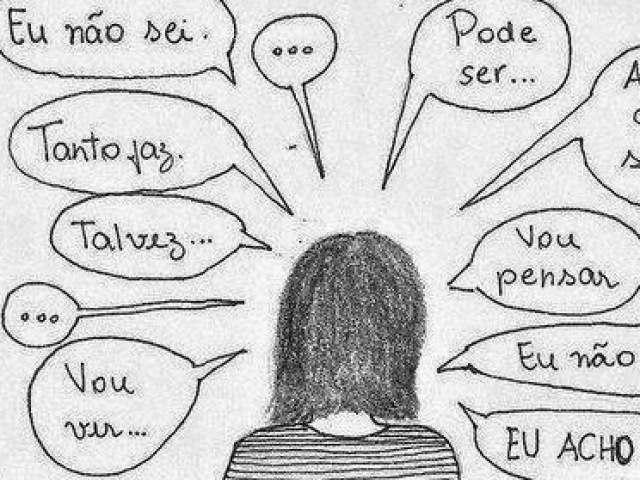 Eu não sei.
...
Pode
ser...
Tanto faz.
Talvez...
Vou
pensar
...
Vou
ver...
Eu não
EU ACHO